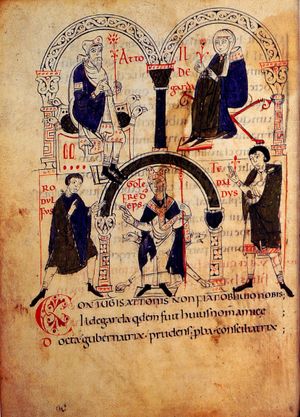 Atto
IL
de
garda
RO
DUL
FUS
Gote
FRED
EPS
TE
DAL
DUS
CONIUGIS ATTONIS NON FIAT OBLIUIO NOBIS
Ildegarda qdem fuit huius nomen amice
Docta gubernatrix. prudens. pba consiliatrix